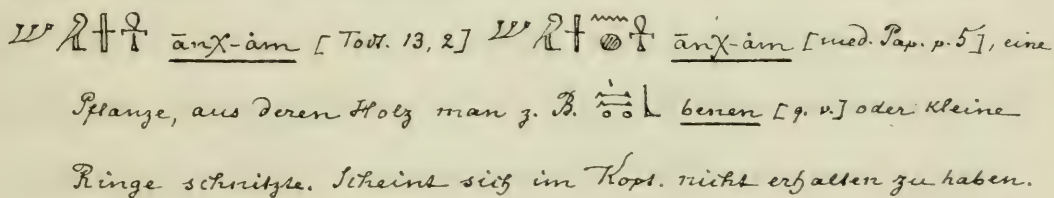 ānχ-ȧm [Todt. 13, 2] ānχ-ȧm [med. Pap. p. 5], eine
Pflanze, aus deren Holz man z. B. benen [q. v.] oder kleine
Ringe schnitzte. Scheint sich im Kopt. nicht erhalten zu haben.